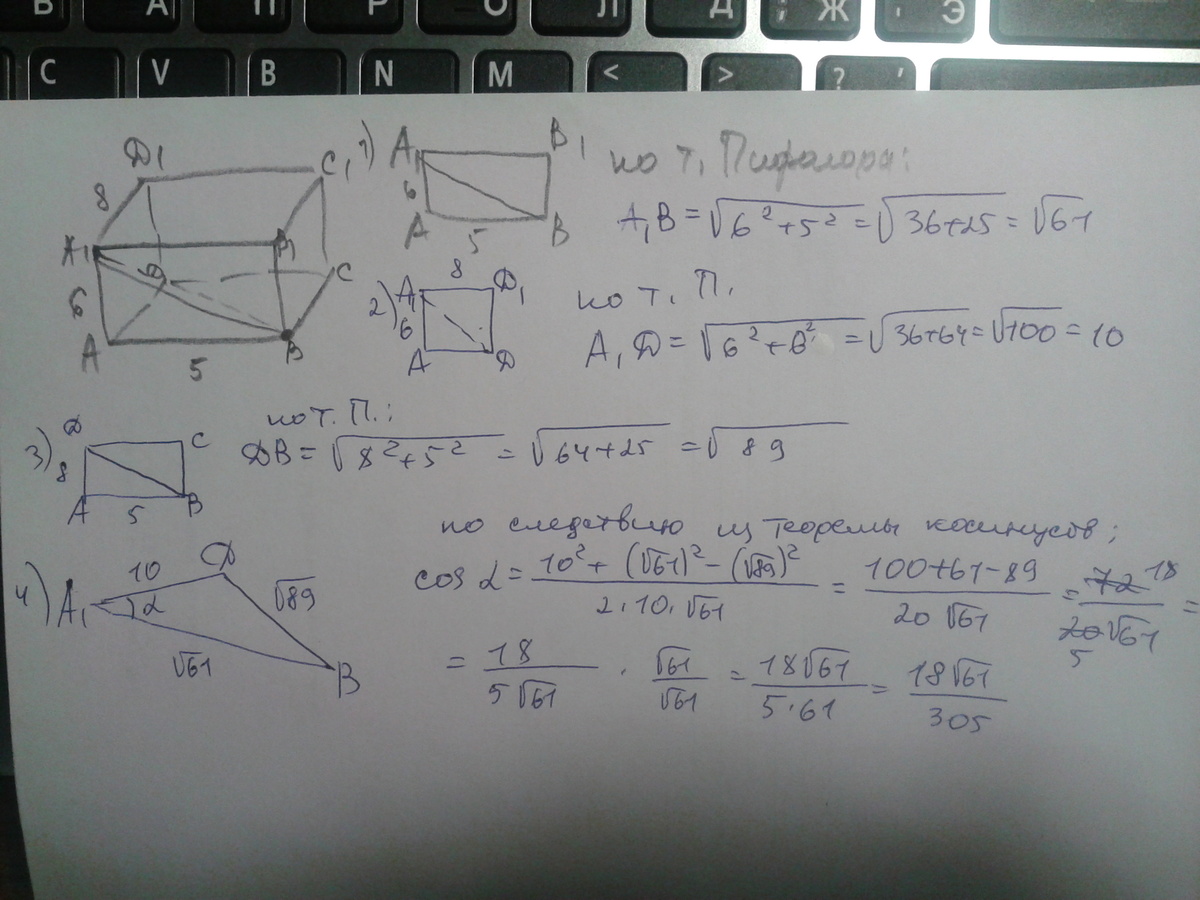 Б А П Р О Л Д ; Ж , Э
C V B N M < > ? ,
Д₁ C₁ 8 A₁ B₁ Д C 6 A B 5
1) A₁ B₁ 6 A 5 B
по т. Пифагора:
A₁B = √(6² + 5²) = √(36+25) = √61
2) A₁ 8 Д₁ 6 A Д
по т. П.
A₁Д = √(6² + 8²) = √(36+64) = √100 = 10
3) Д C 8 A 5 B
по т. П.:
ДB = √(8² + 5²) = √(64+25) = √89
4) A₁ 10 Д √89 α √61 B
по следствию из теоремы косинусов;
cos α = (10² + (√61)² - (√89)²)/(2·10·√61) = (100+61-89)/(20√61) = 72 18/(20 5 √61) =
= 18/(5√61) · √61/√61 = 18√61/(5·61) = 18√61/305